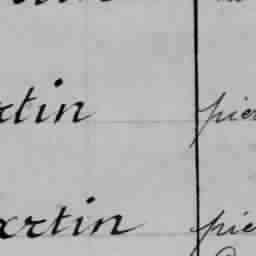 rtin pier
artin pie